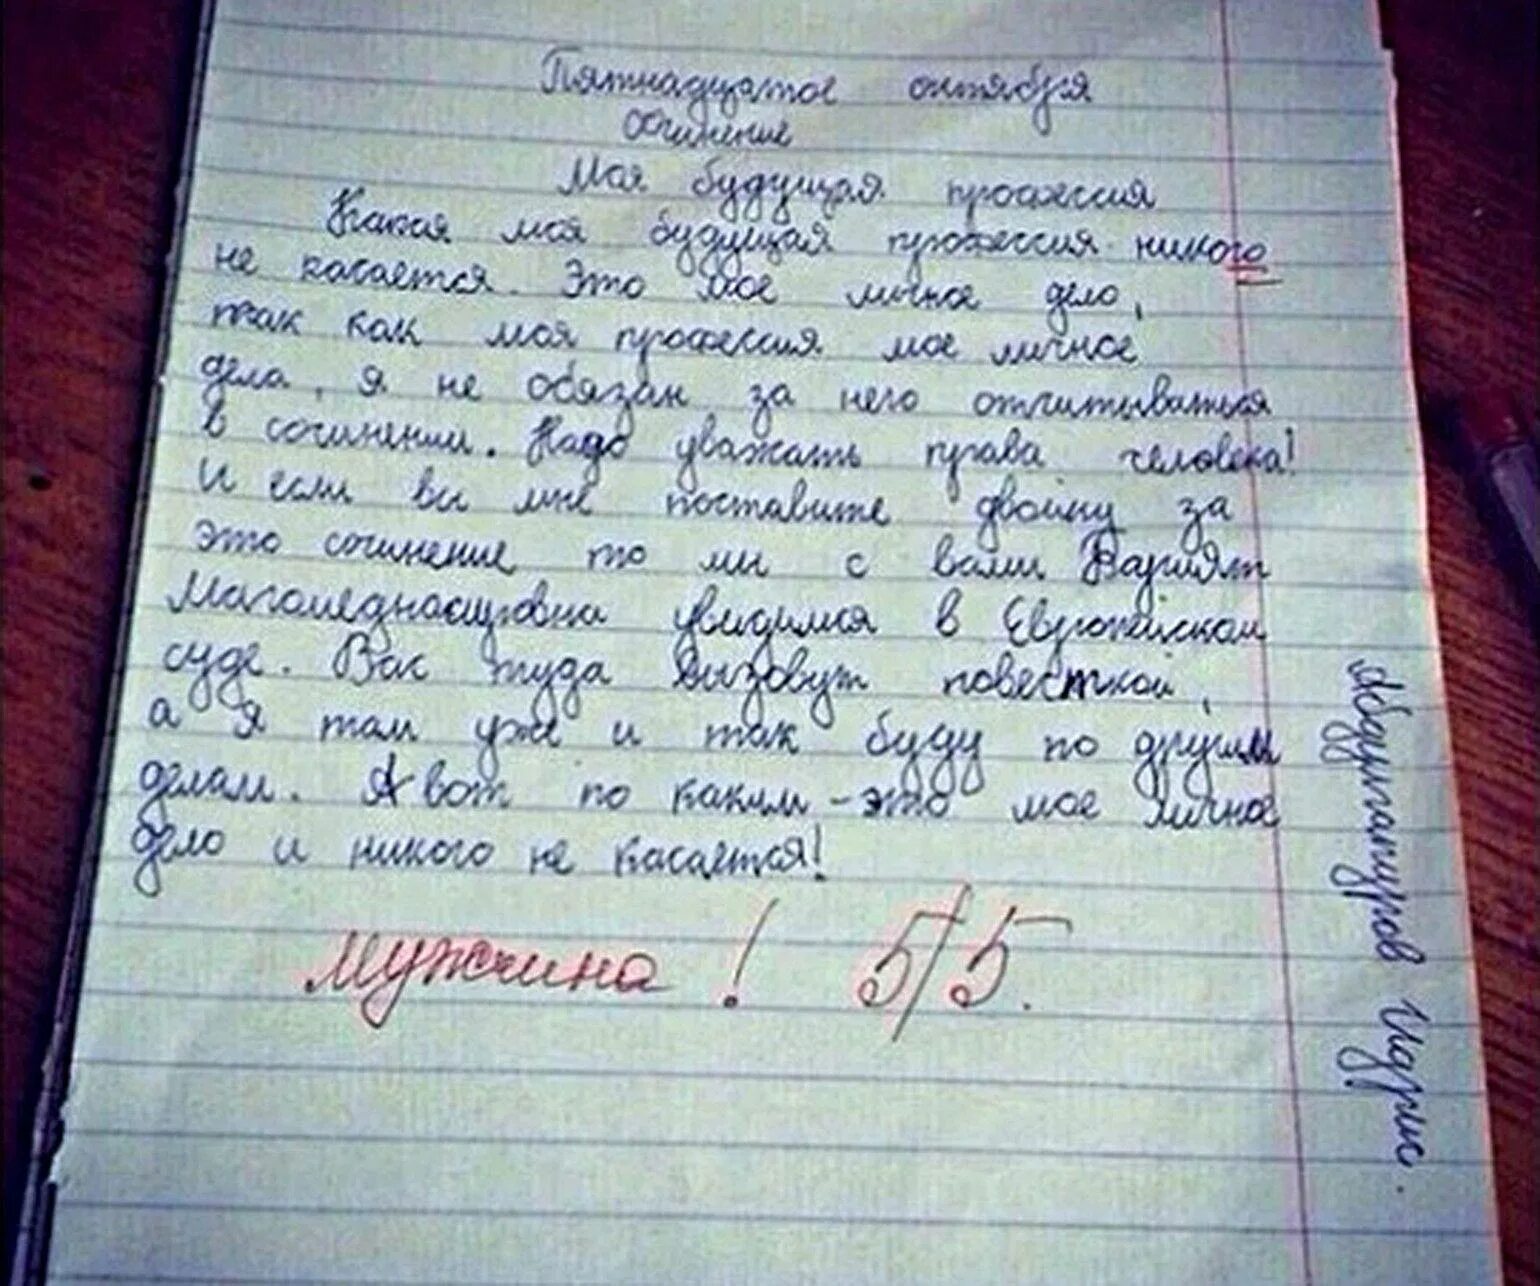 Пятнадцатое октября
Сочинение
Моя будущая профессия
Какая моя будущая профессия никого
не касается. Это мое личное дело,
так как моя профессия мое личное
дела, я не обязан за него отчитываться
в сочинении. Надо уважать права человека!
И если вы мне поставите двойку за
это сочинение то мы с вами Парият
Магомеднасировна увидимся в Европейском
суде. Вас туда вызовут повесткой,
а я там уже и так буду по другим
делам. А вот по каким - это мое личное
дело и никого не касается!
Мужчина! 5/5.
Абдулгапуров Идрис.